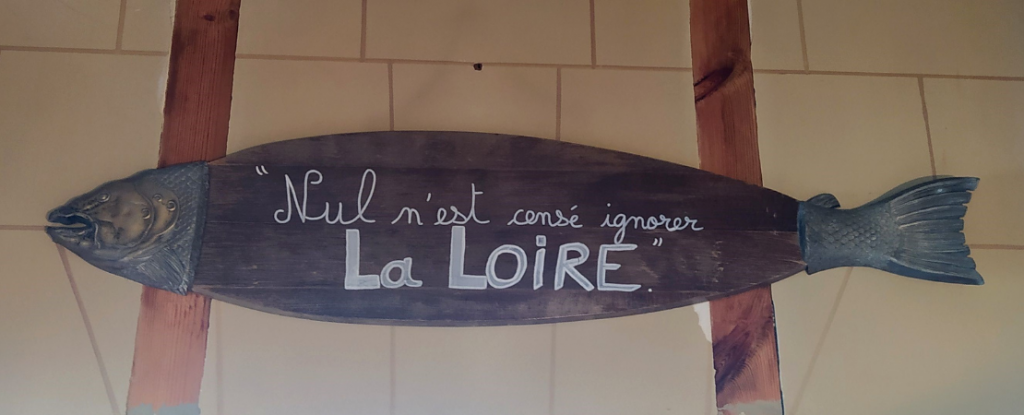 "Nul n'est censé ignorer
La LOiRE".